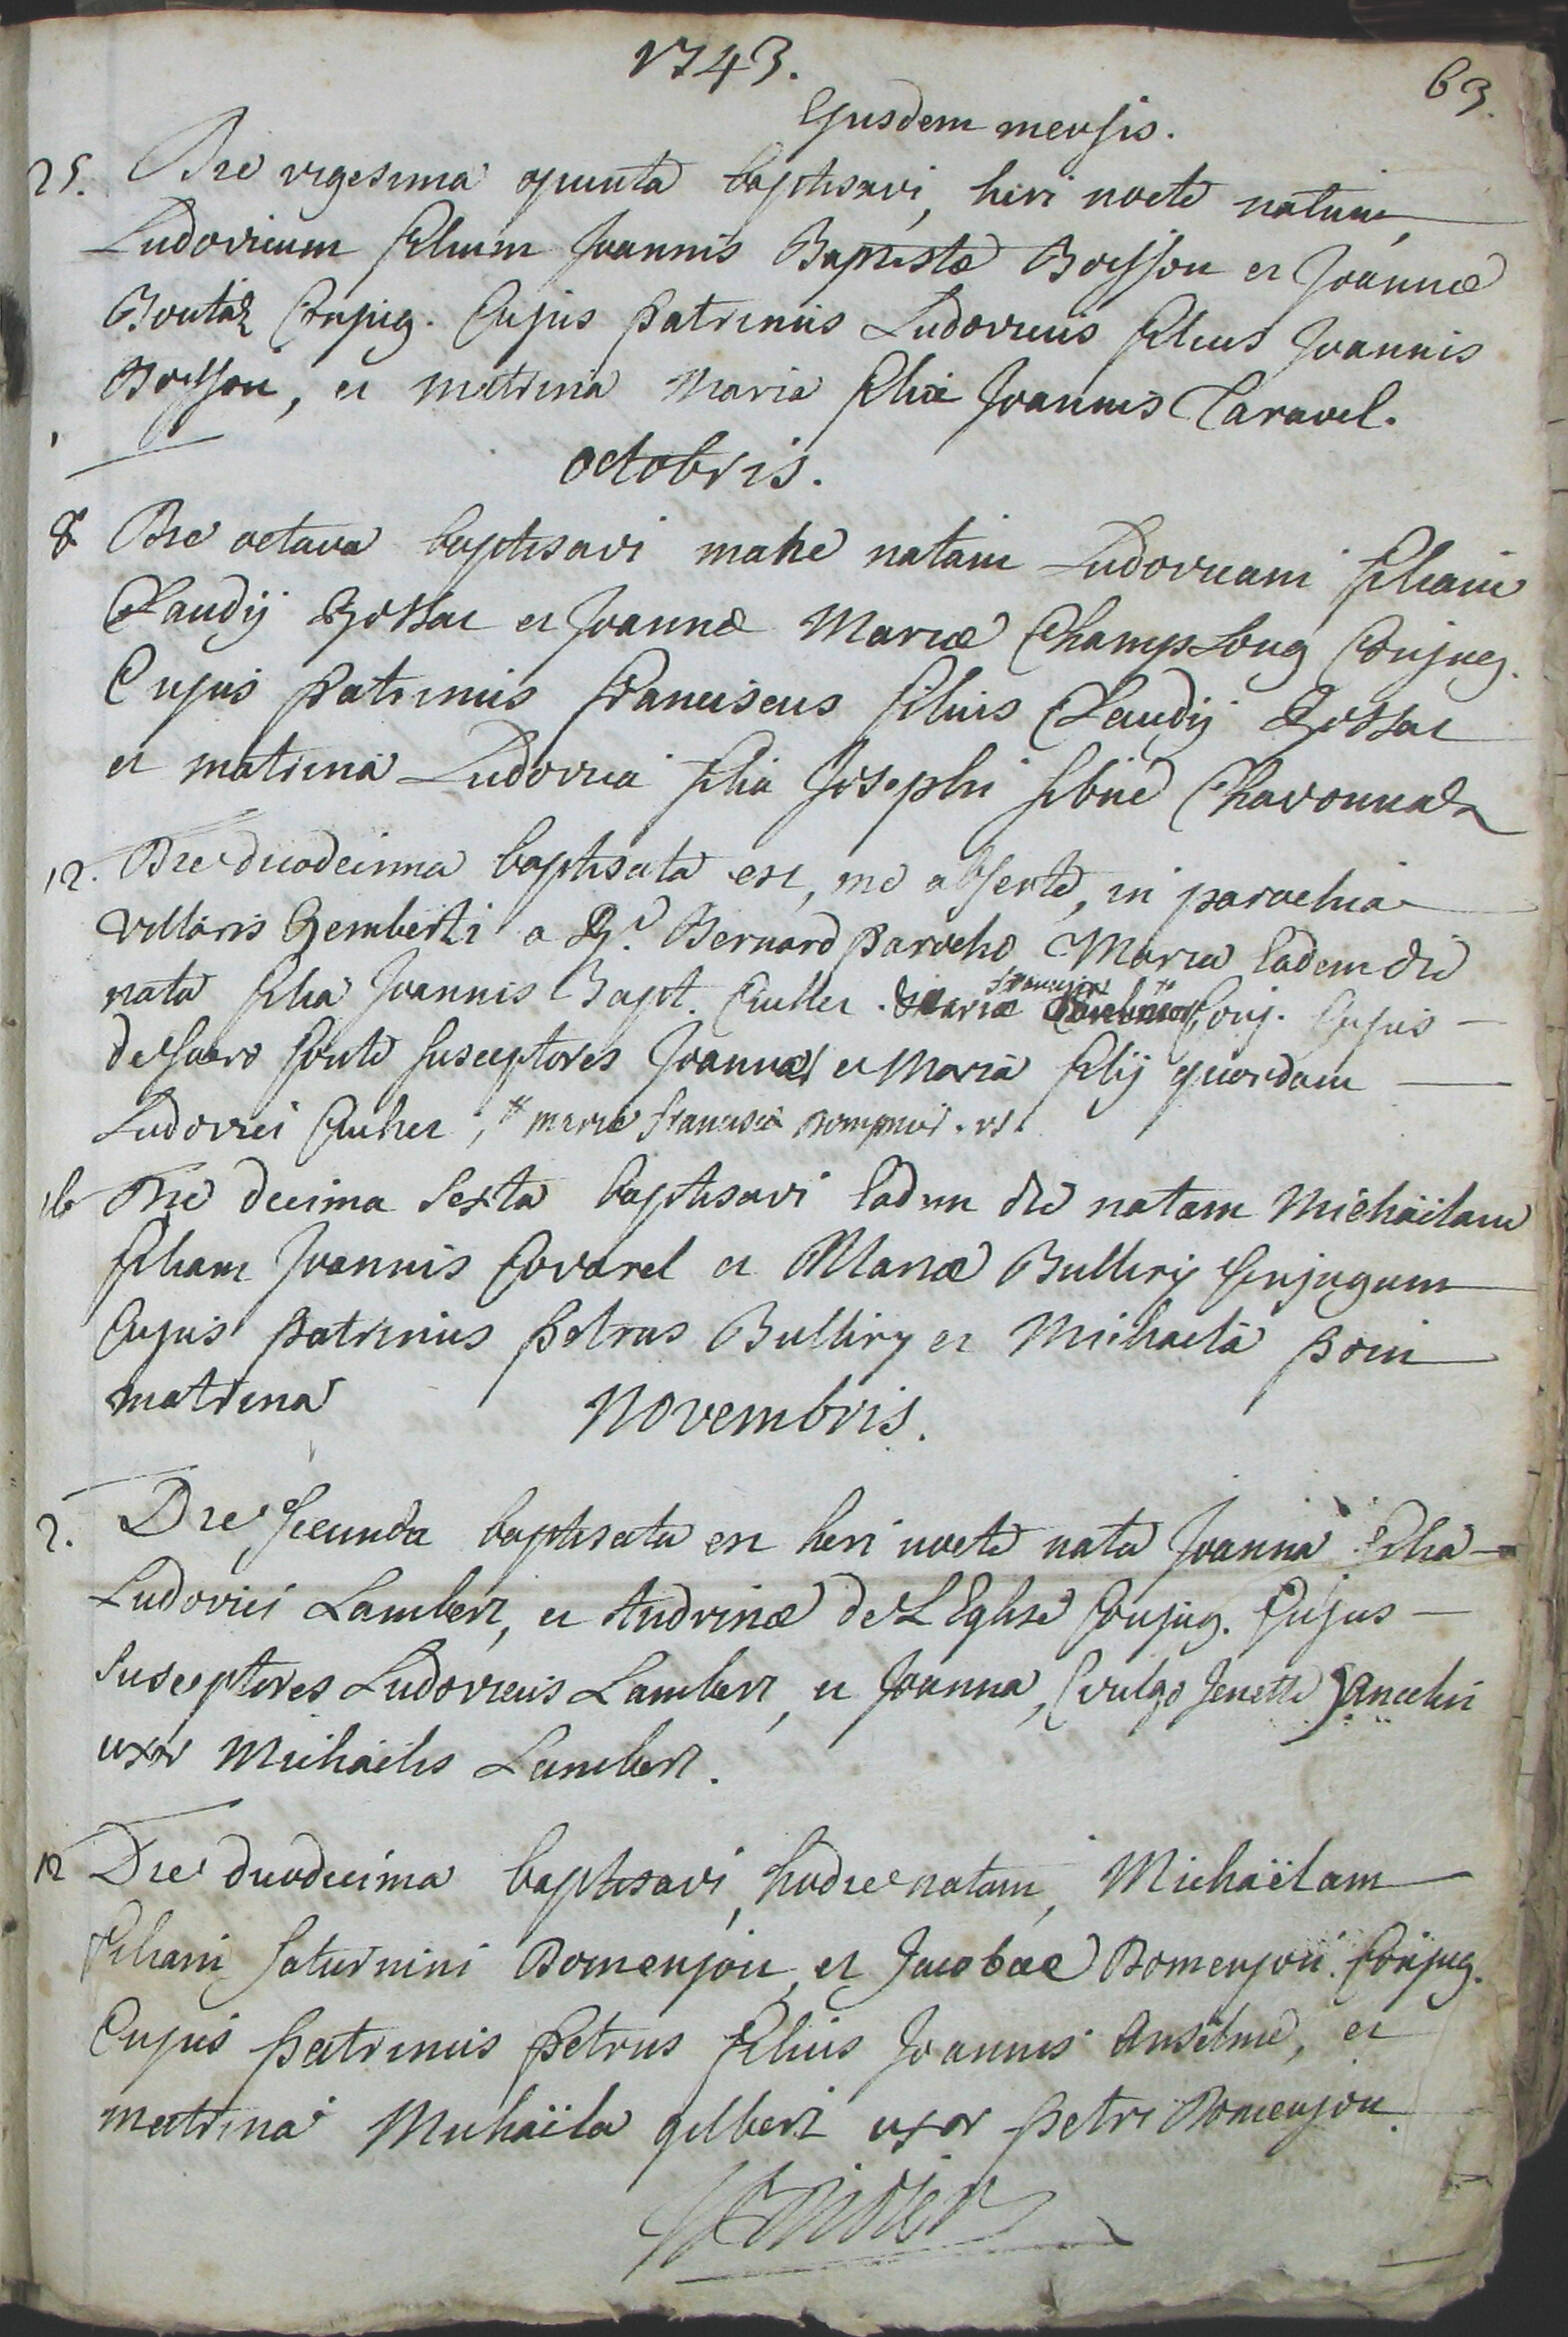 1743.
63.
Ejusdem mensis.
25. Die vigesima quinta baptisavi, heri nocte natum,
Ludovicum filium Joannis Baptistæ Boisson et Joannæ
Boutaz Conjug. Cujus patrinus Ludovicus filius Joannis
Boisson, et matrina Maria filia Joannis Caravel.
octobris.
8 Die octava baptisavi mane natam Ludovicam filiam
Claudij et Joannæ Mariæ Champlong Conjug.
Cujus patrinus franciscus filius Claudij
et matrina Ludovica filia Josephi Chavonnaz
12. Die duodecima baptisata est, me absente, in parochia
villaris Gemberti a Rd. Bernard parocho Maria Eadem die
nata filia Joannis Bapt. Cuiller Mariæ Conj. Cujus
de sacro fonte susceptores Joannes et Maria filij quondam
Ludovici , # mariæ francisca
16 Die decima Sexta baptisavi Eadem die natam Michäelam
filiam Joannis Covarel et Mariæ Bulliry Conjugum
Cujus patrinus petrus Bulliry et Michaela
matrina
Novembris.
2. Die secunda baptisata est heri nocte nata Joanna filia
Ludovici Lambert, et Andrinæ de L Eglise Conjug. Cujus
susceptores Ludovicus Lambert, et Joanna, (vulgo Jenette) ancelin
uxor Michäelis Lambert.
12 Die duodecima baptisavi, hodie natam, Michäelam
filiam Saturnini Bomenjon, et Jacobae Bomenjon. Conjug.
Cujus patrinus petrus filius Joannis Anselme, et
matrina Michaïla gilbert uxor petri Bomenjon.